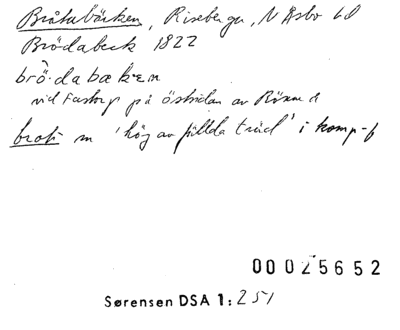 Bråtabäcken, Riseberga, N Åsbo hd
Brödabeck 1822
brö·dabækεn
vid Fastorp på östsidan av Rönne å
brot m 'hög av fällda träd' i komp-f
00025652
Sørensen DSA 1:251